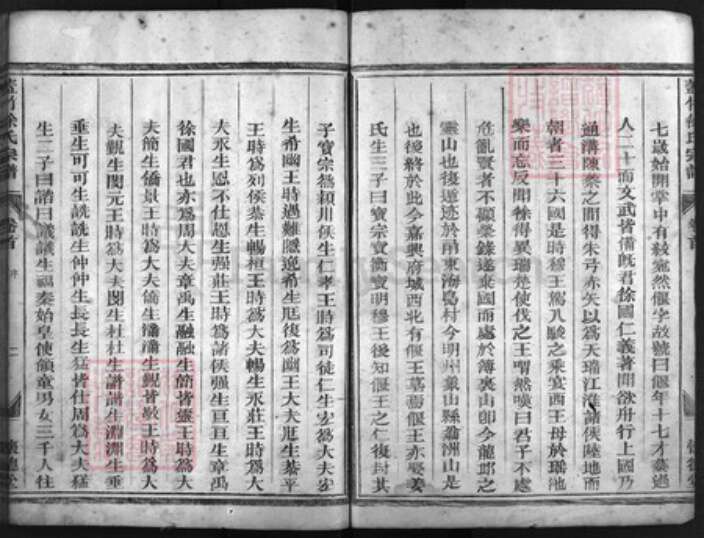 七歲始開掌中有紋宛然偃字故號曰偃年十七才藝過
人二十而文武皆備既君徐國仁義著聞欲舟行上國乃
通溝陳蔡之間得朱弓赤矢以為天瑞江淮諸侯陸地而
朝者三十六國是時穆王駕八駿之乘宴西王母於瑤池
樂而忘反聞徐得異瑞楚使伐之王喟然嘆曰君子不處
危亂賢者不顯榮錄遂棄國而處於薄裏山即今龍邱之
靈山也後遁迹於甬東海島村今明州象山縣翁洲山是
也後終於此今嘉興府城西北有偃王墓焉偃王亦娶姜
氏生三子曰寶宗寶衡寶明穆王後知偃王之仁復封其
子寶宗為潁川侯生仁孝王時為司徒仁生宏為大夫宏
生希幽王時遇難隱逸希生屘後為幽王大夫屘生菾平
王時為列侯菾生暢桓王時為大夫暢生永莊王時為大
夫永生恩不仕恩生强莊王時為諸侯强生亘亘生章禹
徐國君也亦為周大夫章禹生融融生簡皆靈王時為大
夫簡生僑景王時為大夫僑生瀟瀟生觀皆敬王時為大
夫觀生閔元王時為大夫閔生杜杜生譜譜生淵淵生垂
垂生可可生詵詵生仲仲生長長生猛皆仕周為大夫猛
生二子曰諧曰議議生福秦始皇使領童男女三千人往
徐氏宗譜
卷首
二